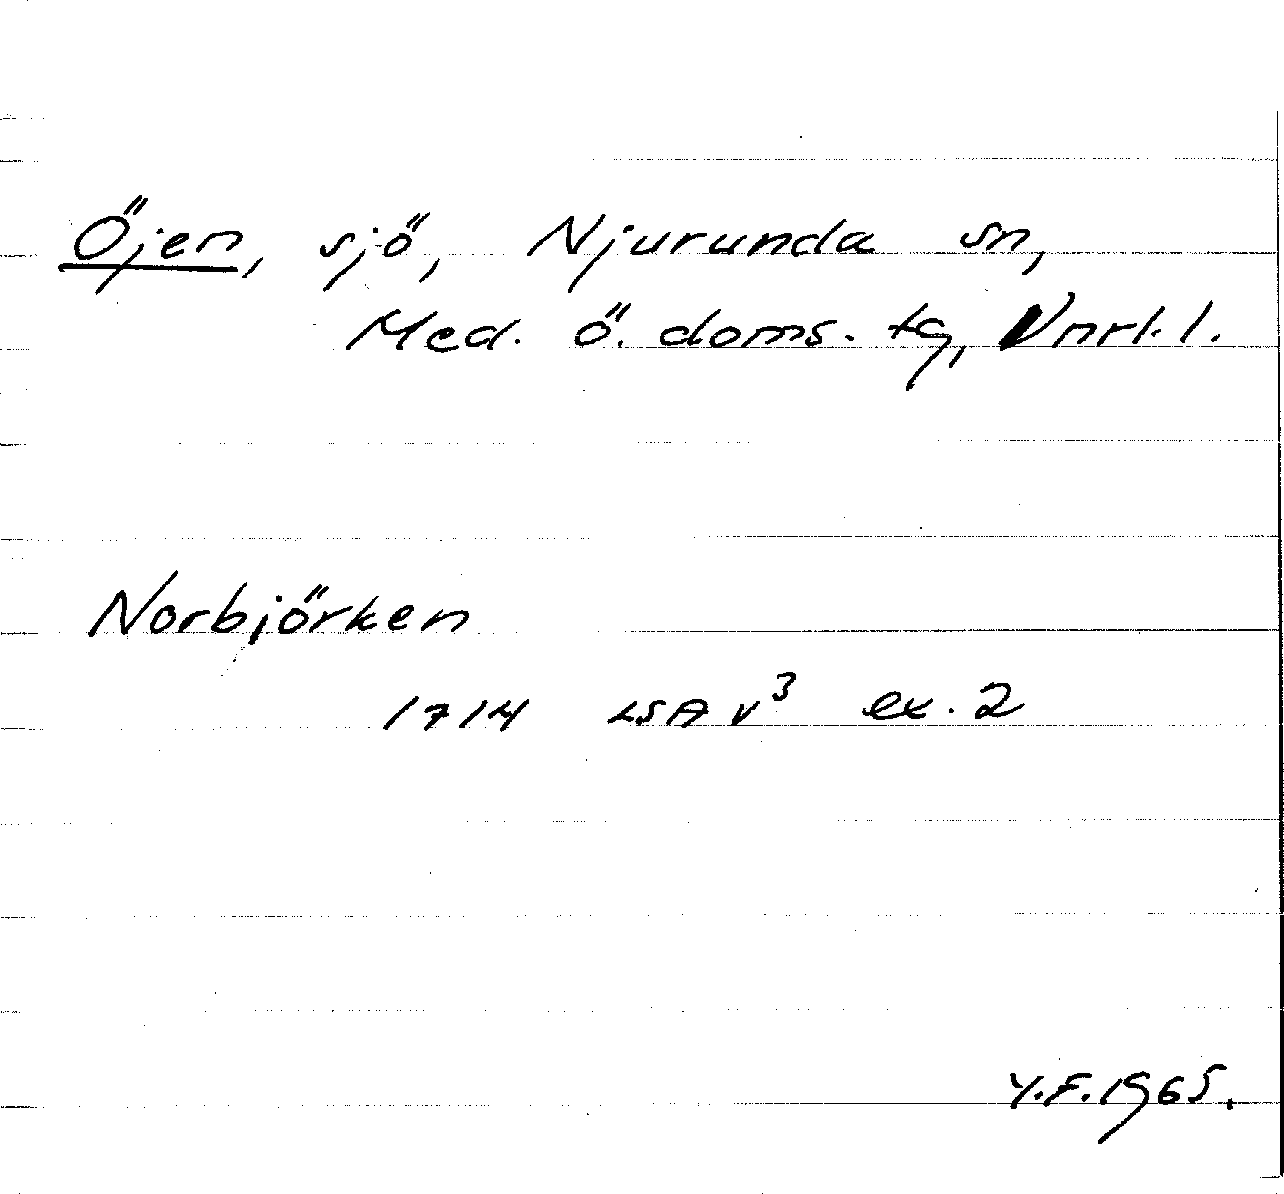 Öjen, sjö, Njurunda sn,
Med. ö. doms. tg, Vnrl. l.
Norbjörken
1714 LSA V³ ex. 2
Y.F. 1965.